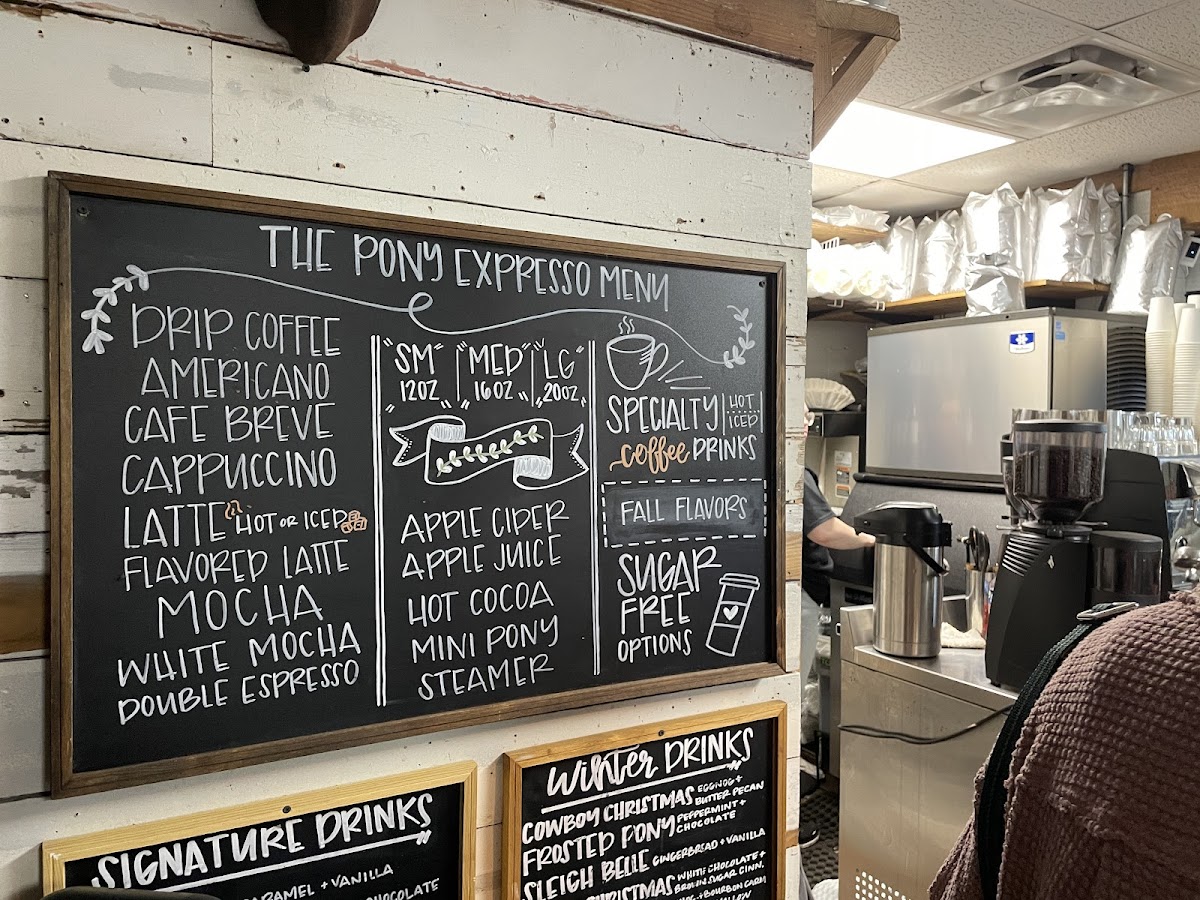 THE PONY EXPRESSO MENU
DRIP COFFEE
AMERICANO
CAFE BREVE
CAPPUCCINO
LATTE HOT OR ICED
FLAVORED LATTE
MOCHA
WHITE MOCHA
DOUBLE ESPRESSO
"SM" "MED" "LG"
12OZ 16OZ 20OZ
APPLE CIDER
APPLE JUICE
HOT COCOA
MINI PONY
STEAMER
SPECIALTY HOT ICED
coffee DRINKS
FALL FLAVORS
SUGAR
FREE
OPTIONS
SIGNATURE DRINKS
CARAMEL + VANILLA
CHOCOLATE
Winter DRINKS
COWBOY CHRISTMAS EGGNOG + BUTTER PECAN
FROSTED PONY PEPPERMINT + CHOCOLATE
SLEIGH BELLE GINGERBREAD + VANILLA
CHRISTMAS WHITE CHOCOLATE + BROWN SUGAR CINN.